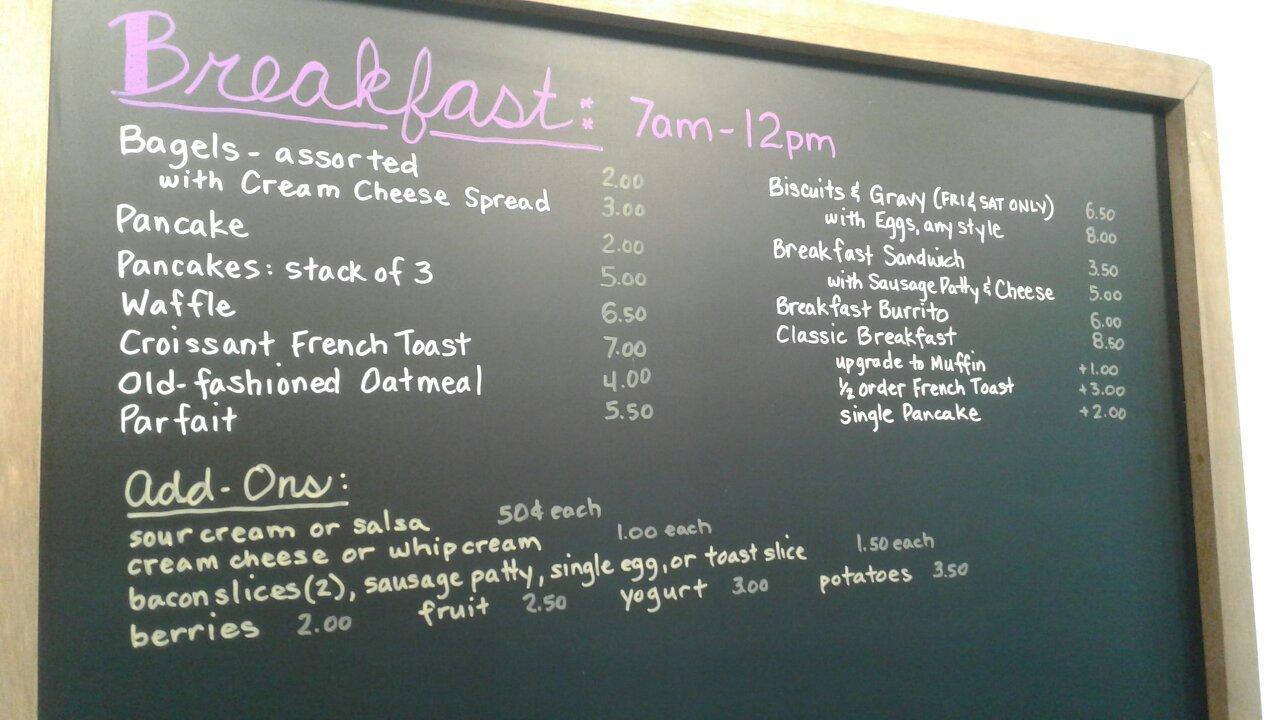 Breakfast: 7am-12pm
Bagels - assorted 2.00
with Cream Cheese Spread 3.00
Pancake 2.00
Pancakes: stack of 3 5.00
Waffle 6.50
Croissant French Toast 7.00
Old-fashioned Oatmeal 4.00
Parfait 5.50
Biscuits & Gravy (FRI & SAT ONLY) 6.50
with Eggs, any style 8.00
Breakfast Sandwich 3.50
with Sausage Patty & Cheese 5.00
Breakfast Burrito 6.00
Classic Breakfast 8.50
upgrade to Muffin +1.00
½ order French Toast +3.00
single Pancake +2.00
Add-Ons:
sour cream or salsa 50¢ each
cream cheese or whip cream 1.00 each
bacon slices (2), sausage patty, single egg, or toast slice 1.50 each
berries 2.00 fruit 2.50 yogurt 3.00 potatoes 3.50